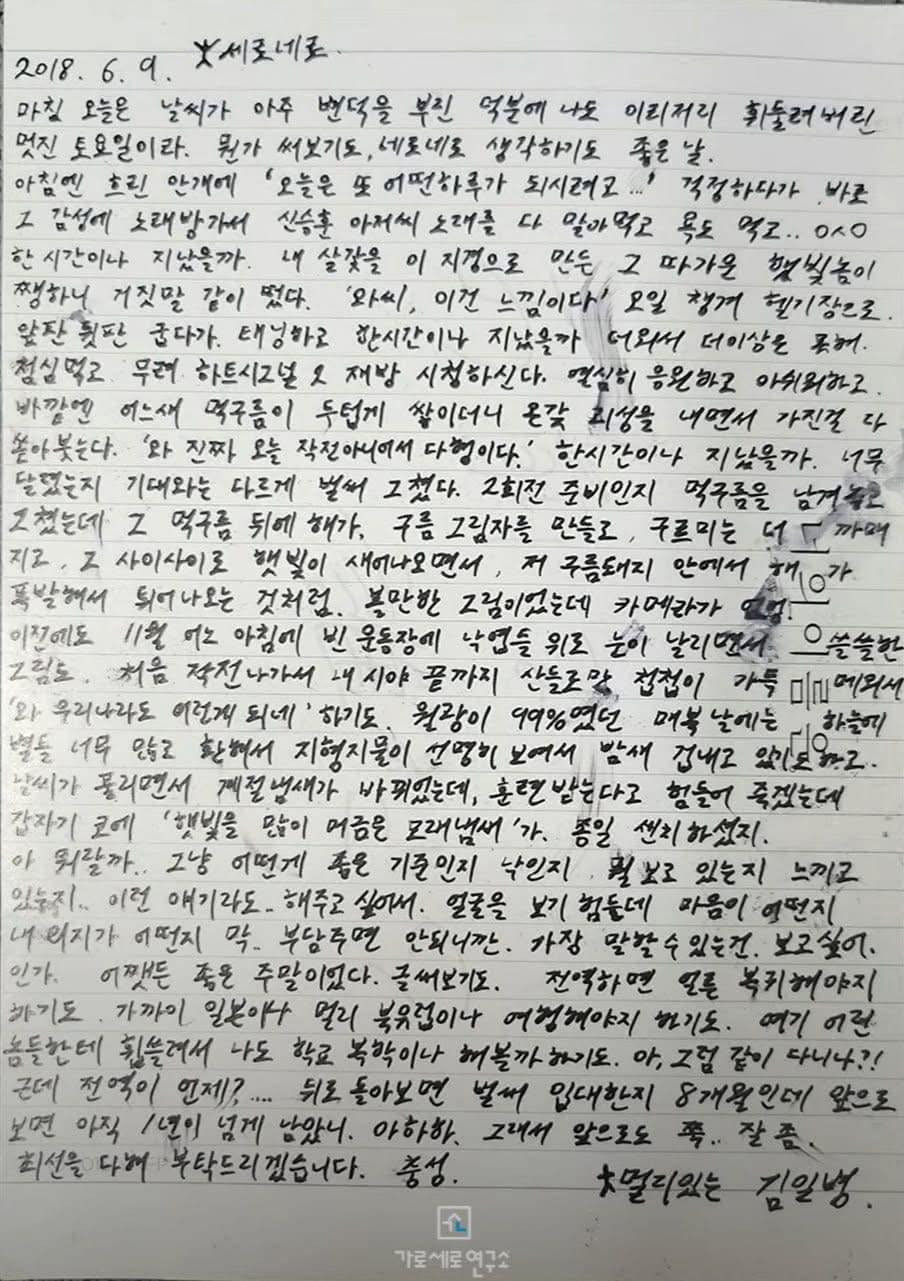 2018. 6. 9. 大세로네로.
마침 오늘은 날씨가 아주 변덕을 부린 덕분에 나도 이리저리 휘둘려버린
멋진 토요일이라. 뭔가 써보기도, 네로네로 생각하기도 좋은 날.
아침엔 흐린 안개에 '오늘은 또 어떤하루가 되시려고...' 걱정하다가 바로
그 감성에 노래방가서 신승훈 아저씨 노래를 다 말아먹고 욕도 먹고..
한 시간이나 지났을까. 내 살갗을 이 지경으로 만든 그 따가운 햇빛놈이
쨍하니 거짓말 같이 떴다. '와씨, 이건 느낌이다' 오일 챙겨 헬기장으로.
앞판 뒷판 굽다가. 태닝하고 한시간이나 지났을까 더워서 더이상은 못해.
점심먹고 무려 하트시그널 2 재방 시청하신다. 열심히 응원하고 아쉬워하고.
바깥엔 어느새 먹구름이 두텁게 쌓이더니 온갖 괴성을 내면서 가진걸 다
쏟아붓는다. '와 진짜 오늘 작전아니어서 다행이다.' 한시간이나 지났을까. 너무
달렸는지 기대와는 다르게 벌써 그쳤다. 2회전 준비인지 먹구름을 남겨놓고
그쳤는데 그 먹구름 뒤에 해가, 구름 그림자를 만들고, 구르미는 더 까매
지고, 그 사이사이로 햇빛이 새어나오면서, 저 구름돼지 안에서 해가
폭발해서 튀어나오는 것처럼. 볼만한 그림이었는데 카메라가
이전에도 11월 어느 아침에 빈 운동장에 낙엽들 위로 눈이 날리면서 쓸쓸한
그림도. 처음 작전나가서 내 시야 끝까지 산들로만 첩첩이 가득 메워서
'와 우리나라도 이런게 되네' 하기도. 월광이 99%였던 매복날에는 하늘에
별들 너무 많고 환해서 지형지물이 선명히 보여서 밤새 겁내고 있기도 하고..
날씨가 풀리면서 계절냄새가 바뀌었는데, 훈련받는다고 힘들어 죽겠는데
갑자기 코에 '햇빛을 많이 머금은 모래냄새'가. 종일 센치하셨지.
아 뭐랄까.. 그냥 어떤게 좋은 기준인지 낙인지 뭘 보고 있는지 느끼고
있는지.. 이런 얘기라도.. 해주고 싶어서. 얼굴을 보기 힘든데 마음이 어떤지
내 의지가 어떤지 막.. 부담주면 안되니깐. 가장 말할 수 있는건. 보고싶어.
인가. 어쨋든 좋은 주말이었다. 글써보기도. 전역하면 얼른 복귀해야지
하기도. 가까이 일본이나 멀리 북유럽이나 여행해야지 하기도. 여기 어린
놈들한테 휩쓸려서 나도 학교 복학이나 해볼까하기도. 아, 그럼 같이 다니나?!
근데 전역이 언제?.... 뒤로 돌아보면 벌써 입대한지 8개월인데 앞으로
보면 아직 1년이 넘게 남았니. 아하하. 그래서 앞으로도 쭉.. 잘 좀.
최선을 다해 부탁드리겠습니다. 충성.
大멀리있는 김일병.
고인의믿음
가로세로연구소